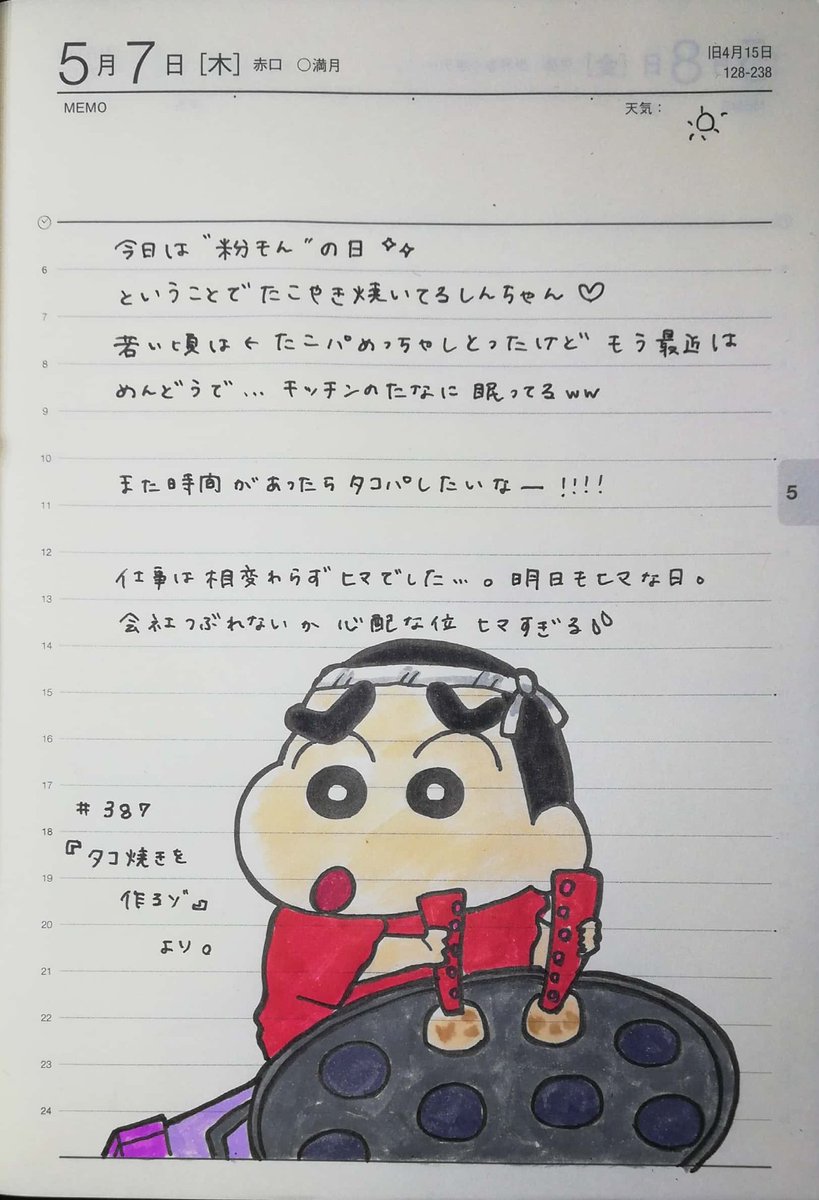 5月7日[木] 赤口 ○満月
旧4月15日
128-238
MEMO
天気：
今日は"粉もん"の日
ということでたこやき焼いてるしんちゃん♡
若い頃は← たこパめっちゃしとったけど もう最近は
めんどうで… キッチンのたなに 眠ってるww
また時間があったら タコパしたいなー !!!!
仕事は相変わらずヒマでした…。明日もヒマな日。
会社つぶれないか 心配な位 ヒマすぎる
#387
『タコ焼きを
作るゾ』
より。
6
7
8
9
10
11
12
13
14
15
16
17
18
19
20
21
22
23
24
5